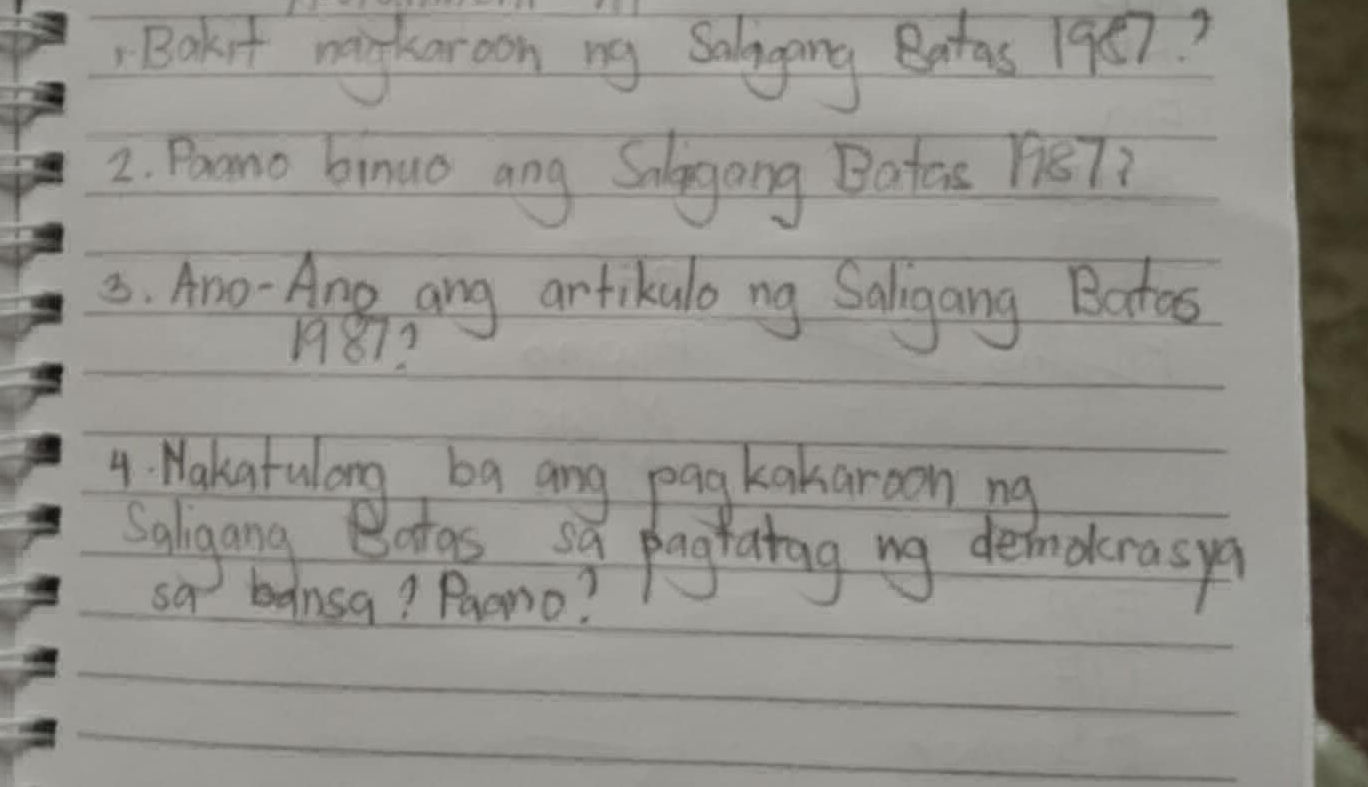 1. Bakit nagkaroon ng Saligang Batas 1987?
2. Paano binuo ang Saligang Batas 1987?
3. Ano-Ano ang artikulo ng Saligang Batas
1987?
4. Nakatulong ba ang pagkakaroon ng
Saligang Batas sa pagtatag ng demokrasya
sa bansa? Paano?